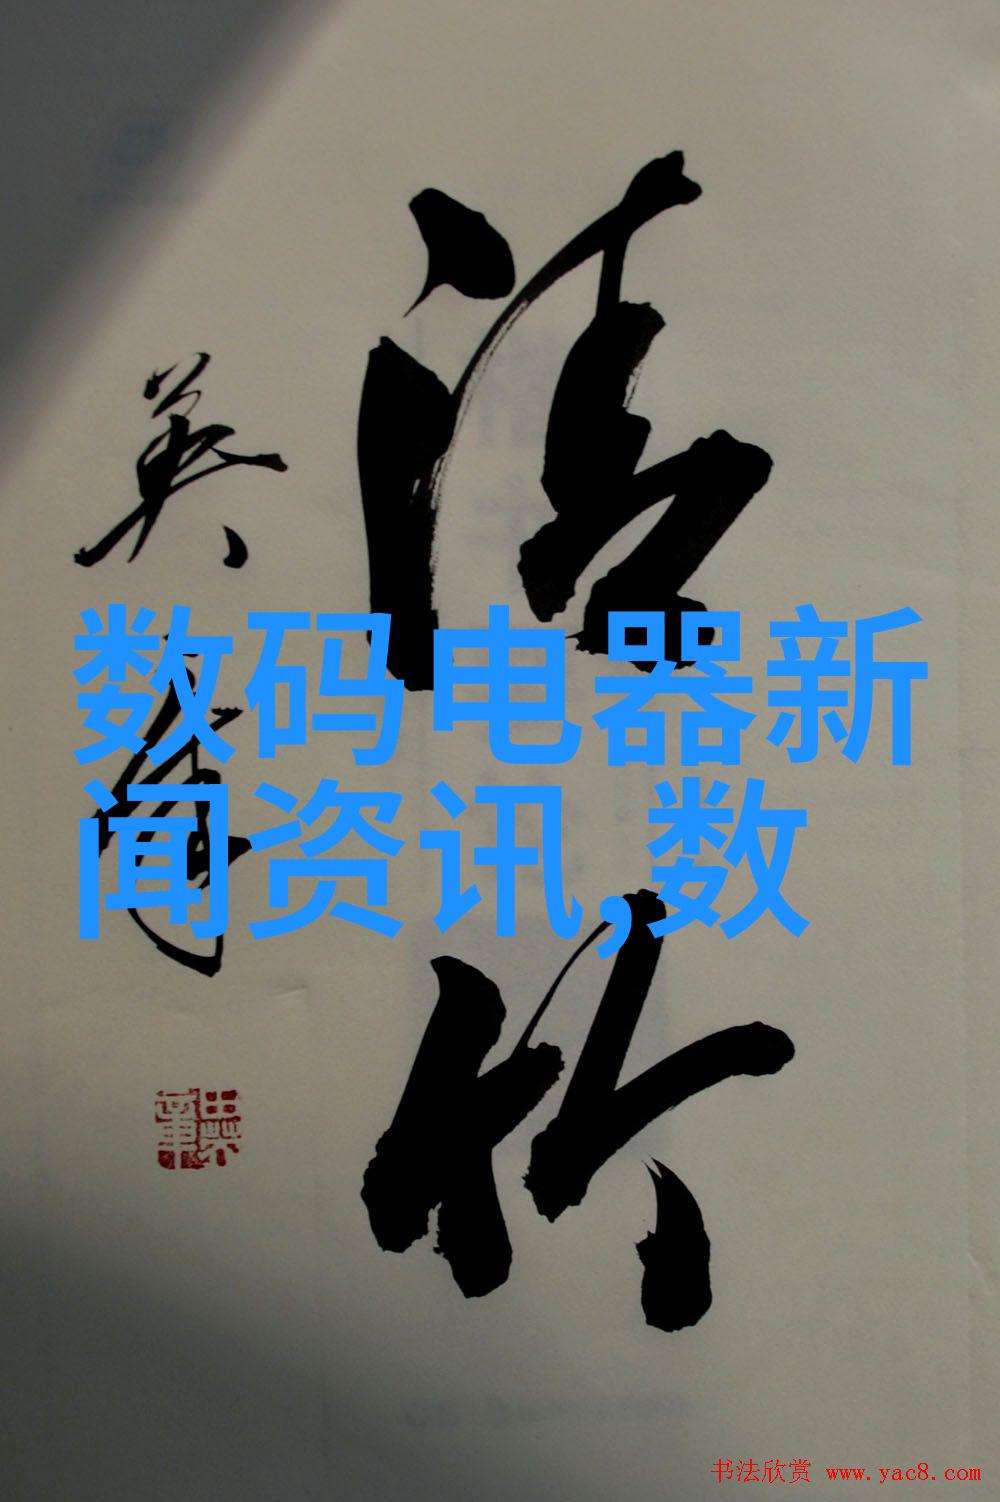 数码电器新
闻资讯,数
清竹
英年
书法欣赏 www.yac8.com